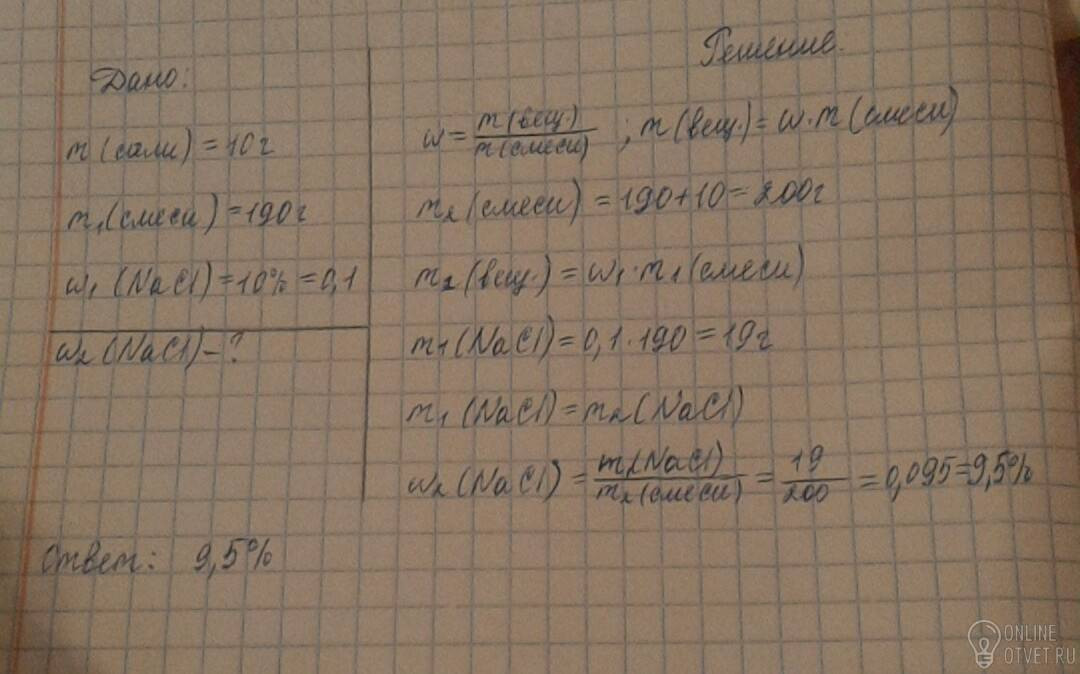 Дано:
m(соли) = 10г
m₁(смеси) = 190г
w₁ (NaCl) = 10% = 0,1
w₂ (NaCl) - ?
Решение.
w = m(вещ.) / m(смеси) ; m(вещ.) = w · m(смеси)
m₂(смеси) = 190 + 10 = 200г
m₂(вещ.) = w₁ · m₁(смеси)
m₁(NaCl) = 0,1 · 190 = 19г
m₁(NaCl) = m₂(NaCl)
w₂(NaCl) = m₂(NaCl) / m₂(смеси) = 19 / 200 = 0,095 = 9,5%
Ответ: 9,5%
ONLINE
OTVET.RU